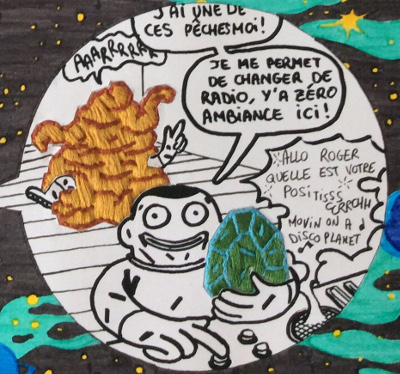 J'AI UNE DE
CES PÊCHES MOI!
AAARRRRAA
JE ME PERMET
DE CHANGER DE
RADIO, Y'A ZÉRO
AMBIANCE ICI!
ALLO ROGER
QUELLE EST VOTRE
POSITISSS
CRRRHH
MOVIN ON A
DISCO PLANET